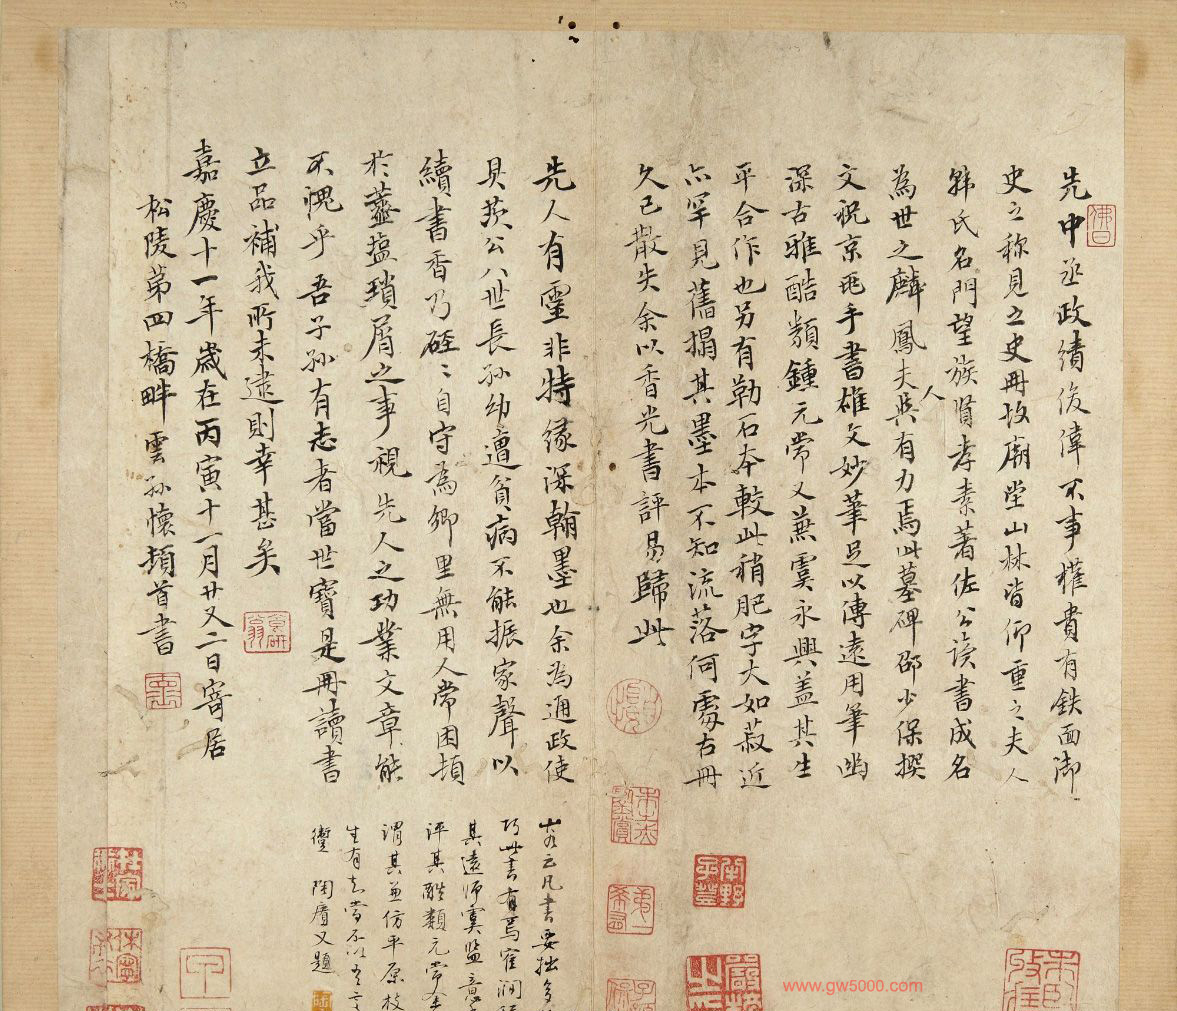 先中丞政績俊偉不事權貴有鉄面御
史之称見之史冊故廟堂山林皆仰重之夫人
韩氏名門望族賢孝素著佐公读書成名
為世之麟鳳夫人與有力焉此墓碑邵少保撰
文祝京兆手書雄文妙筆足以傳遠用筆幽
深古雅酷類鍾元常又兼虞永興盖其生
平合作也另有勒石本較此稍肥字大如菽近
亦罕見舊搨其墨本不知流落何處右冊
久已散失余以香光書評易歸此
先人有靈非特缘深翰墨也余為通政使
貝茨公八世長孙幼遭貧病不能振家聲以
續書香乃硁〻自守為鄉里無用人常困頓
於虀塩瑣屑之事視先人之功業文章能
不愧乎吾子孙有志者當世寶是冊讀書
立品補我所未逮則幸甚矣
嘉慶十一年歲在丙寅十一月廿又二日寄居
松陵第四橋畔雲孙懷頓首書
凡書要拙多
巧此書有焉
其遠师虞监
評其酷類元常
謂其並仿平原
生有
陶賡又題
www.gw5000.com